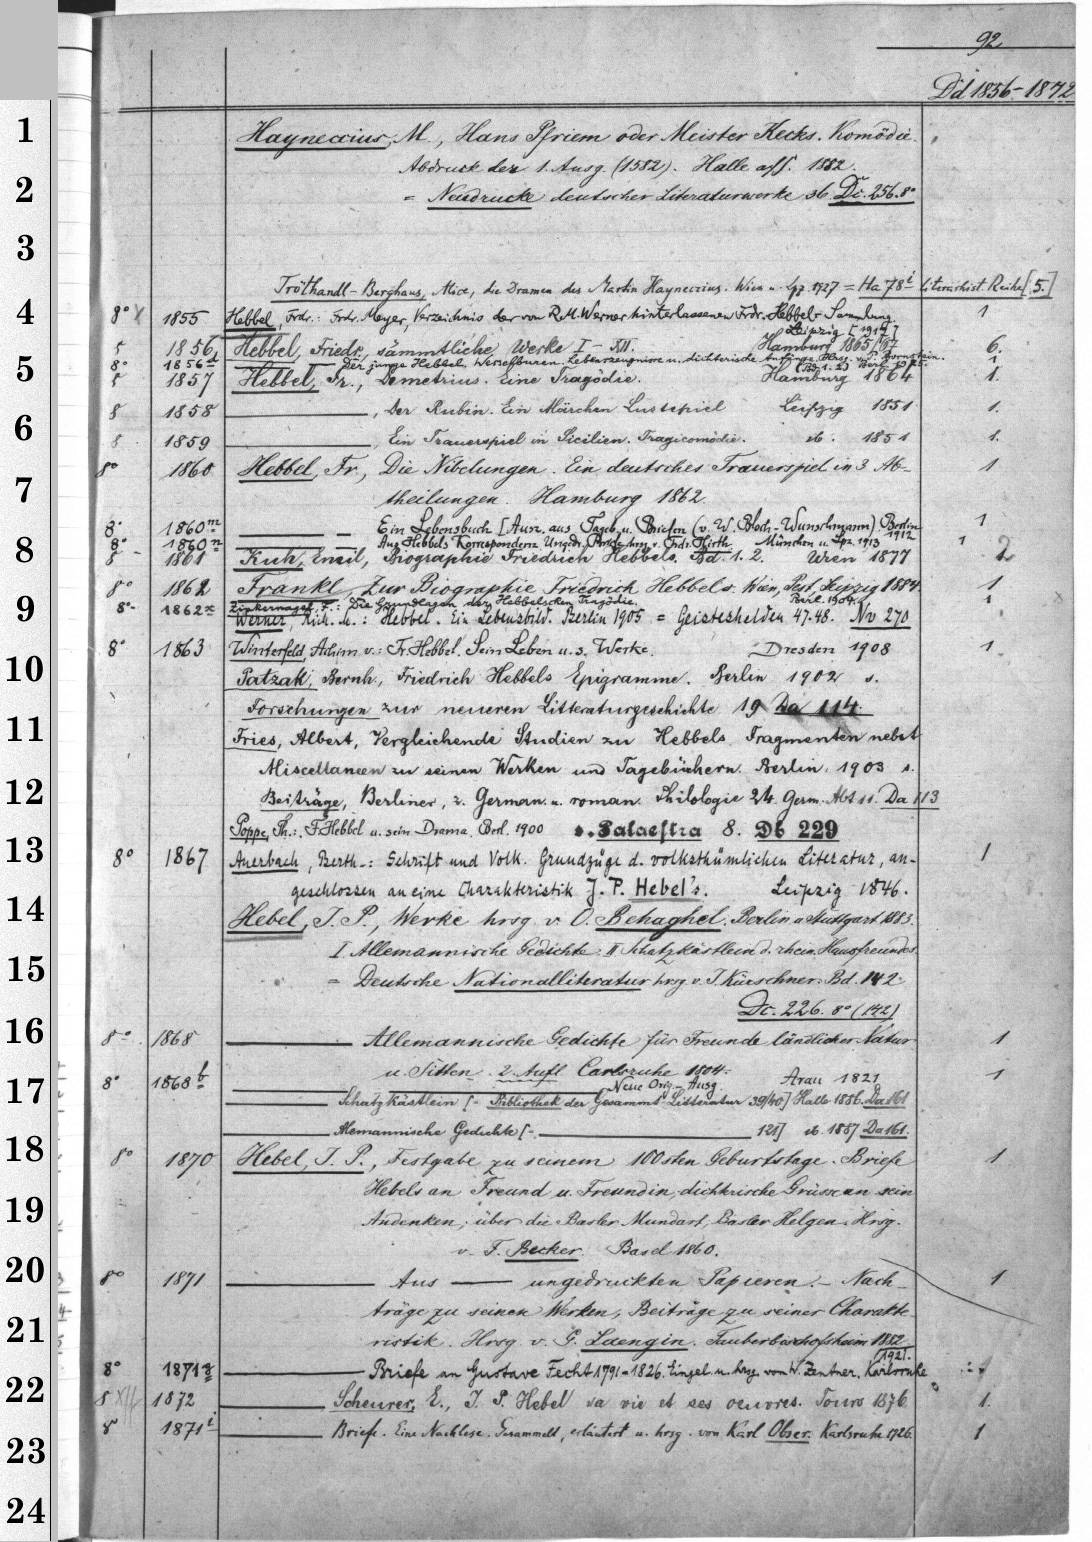 92
Dd 1856-1872
1 Haynecius, M., Hans Pfriem oder Meister Kecks. Komödie.
Abdruck der 1. Ausg. (1582). Halle a/S. 1882.
2 = Neudrucke deutscher Literaturwerke 36. Dc. 256. 8°
3
Tröthandl-Berghaus, Alice, die Dramen des Martin Haynecius. Wien u. Lpz. 1927 = Ha 78 i Literarhist. Reihe [5.]
4 8° 1855 Hebbel, Frdr.: Frdr. Meyer, Verzeichnis der von R.M. Werner hinterlassenen Frdr. Hebbel-Sammlung. 1
Leipzig [1914]
1856 Hebbel, Friedr., sämmtliche Werke I-XII. Hamburg 1865/67 6.
5 8° 1856 d Der junge Hebbel. Lebenszeugnisse u. dichterische Anfänge. Hrsg. v. P. Bornstein. (Bd. 1.2) Berl. 1
8 1857 Hebbel, Fr., Demetrius. Eine Tragödie. Hamburg 1864 1.
8 1858 , Der Rubin. Ein Märchen Lustspiel Leipzig 1851 1.
6 8 1859 , Ein Trauerspiel in Sicilien. Tragicomödie. ib. 1851 1.
8° 1860 Hebbel, Fr., Die Nibelungen. Ein deutsches Trauerspiel in 3 Ab-
7 theilungen. Hamburg 1862. 1
8° 1860 m Ein Lebensbuch [Ausz. aus Tageb. u. Briefen (v. W. Bloch-Wunschmann) Berlin 1912 1
8 8° 1860 n Aus Hebbels Korrespondenz. Ungedr. Briefe hrg. v. Frdr. Hirth. München u. Lpz. 1913 1
8 1861 Kuh, Emil, Biographie Friedrich Hebbels. Bd. 1. 2. Wien 1877 2
8° 1862 Frankl, Zur Biographie Friedrich Hebbels. Wien, Pest, Leipzig 1884. 1
9 8° 1862 Zinkernagel, F.: Die Grundlagen der Hebbelschen Tragödie. Berl. 1904. 1
Werner, Rich. M.: Hebbel. Ein Lebensbild. Berlin 1905 = Geisteshelden 47.48. Nv 270
8° 1863 Winterfeld, Achim v.: Fr. Hebbel. Sein Leben u. s. Werke. Dresden 1908 1
10 Patzak, Bernh., Friedrich Hebbels Epigramme. Berlin 1902 s.
Forschungen zur neueren Litteraturgeschichte 19 Da 114.
11 Fries, Albert, Vergleichende Studien zu Hebbels Fragmenten nebst
Miscellaneen zu seinen Werken und Tagebüchern. Berlin. 1903 s.
12 Beiträge, Berliner, z. German. u. roman. Philologie 24. Germ. Abt 11. Da 113
Poppe, Th.: F. Hebbel u. sein Drama. Berl. 1900 s. Palaestra 8. Db 229
13 8° 1867 Auerbach, Berth.: Schrift und Volk. Grundzüge d. volksthümlichen Literatur, an- 1
geschlossen an eine Charakteristik J. P. Hebel's. Leipzig 1846.
14 Hebel, J. P., Werke hrsg v. O. Behaghel. Berlin u Stuttgart 1883.
I Allemannische Gedichte: II Schatzkästlein d. rhein. Hausfreundes.
15 = Deutsche Nationalliteratur hrsg. v. J. Kürschner. Bd. 142.
Dc. 226. 8° (142)
16 8° 1868 Allemannische Gedichte für Freunde ländlicher Natur 1
u. Sitten. 2. Aufl. Carlsruhe 1804.
17 8° 1868 b Neue Orig.-Ausg. Arau 1821 1
Schatzkästlein [= Bibliothek der Gesammt-Litteratur 39/40] Halle 1886. Da 161
Alemannische Gedichte [= 121] ib. 1887 Da 161.
18 8° 1870 Hebel, J. P., Festgabe zu seinem 100sten Geburtstage. Briefe 1
Hebels an Freund u. Freundin, dichterische Grüsse an sein
19 Andenken, über die Basler Mundart, Basler Helgen. Hrsg.
v. F. Becker. Basel 1860.
20 8° 1871 Aus ungedruckten Papieren. - Nach- 1
träge zu seinen Werken, Beiträge zu seiner Charakte-
21 ristik. Hrsg. v. G. Laengin. Tauberbischofsheim 1882.
8° 1871 g Briefe an Gustave Fecht 1791-1826. Eingel. u. hrsg. von W. Zentner. Karlsruhe 1921. 1
22 8 1872 Scheurer, E., J. P. Hebel sa vie et ses oeuvres. Tours 1876. 1.
8° 1871 i Briefe. Eine Nachlese. Gesammelt, erläutert u. hrsg. von Karl Obser. Karlsruhe 1926. 1
23
24